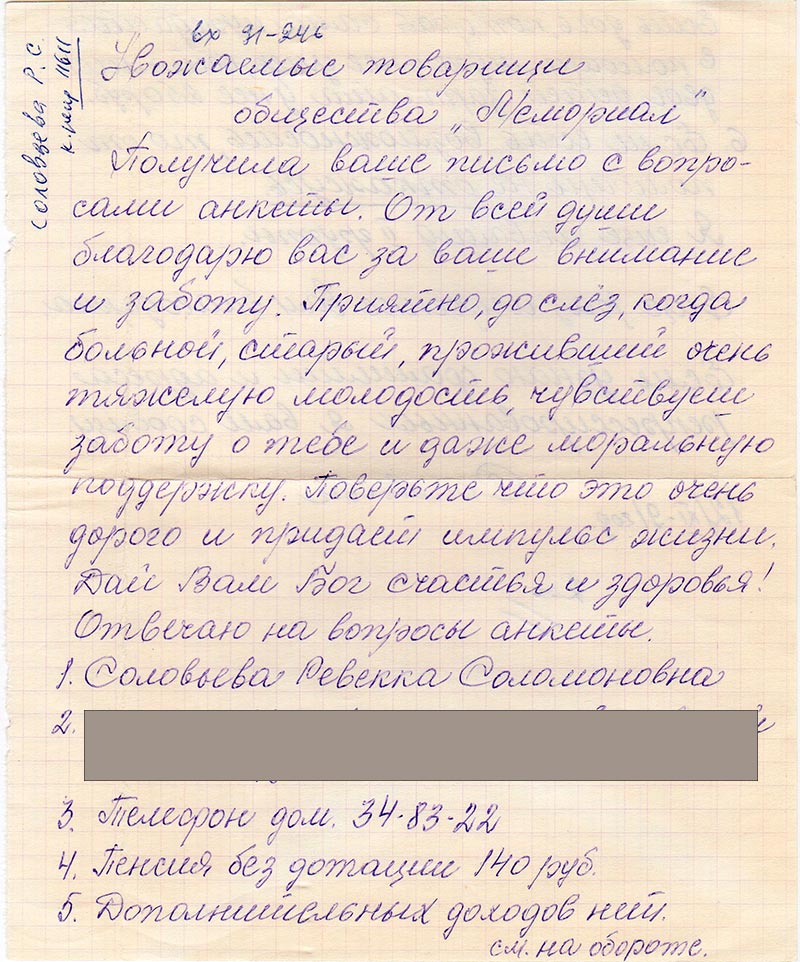 вх 91-246
Соловьева Р. С.
к. пещ 11611
Уважаемые товарищи
общества „Мемориал"
Получила ваше письмо с вопро-
сами анкеты. От всей души
благодарю вас за ваше внимание
и заботу. Приятно, до слёз, когда
больной, старый, проживший очень
тяжелую молодость, чувствуеш
заботу о тебе и даже моральную
поддержку. Поверьте что это очень
дорого и придаёт импульс жизни.
Дай Вам Бог счастья и здоровья!
Отвечаю на вопросы анкеты.
1. Соловьева Ревекка Соломоновна
2.
3. Телефон дом. 34-83-22
4. Пенсия без дотации 140 руб.
5. Дополнительных доходов нет.
см. на обороте.